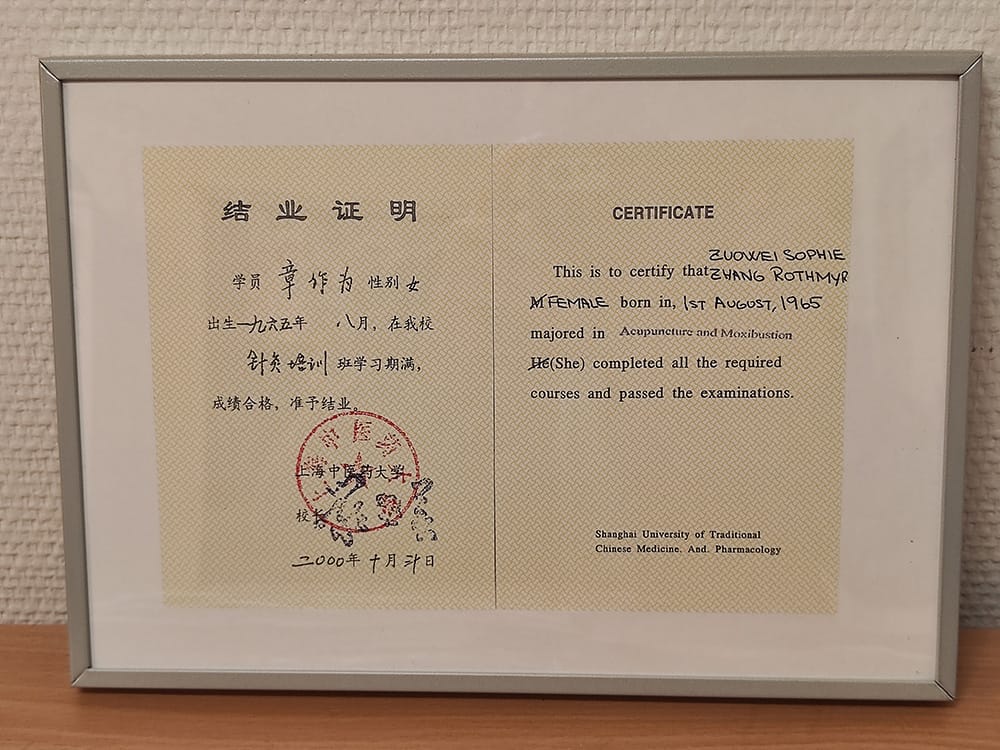 结业证明
学员 章作为 性别 女
出生一九六五年 八月，在我校
针灸培训 班学习期满，
成绩合格，准予结业。
上海中医药大学
校长
二000年十月卅日
CERTIFICATE
ZUOWEI SOPHIE
This is to certify that ZHANG ROTHMYR
M FEMALE born in, 1ST AUGUST, 1965
majored in Acupuncture and Moxibustion
He(She) completed all the required
courses and passed the examinations.
Shanghai University of Traditional
Chinese Medicine. And. Pharmacology